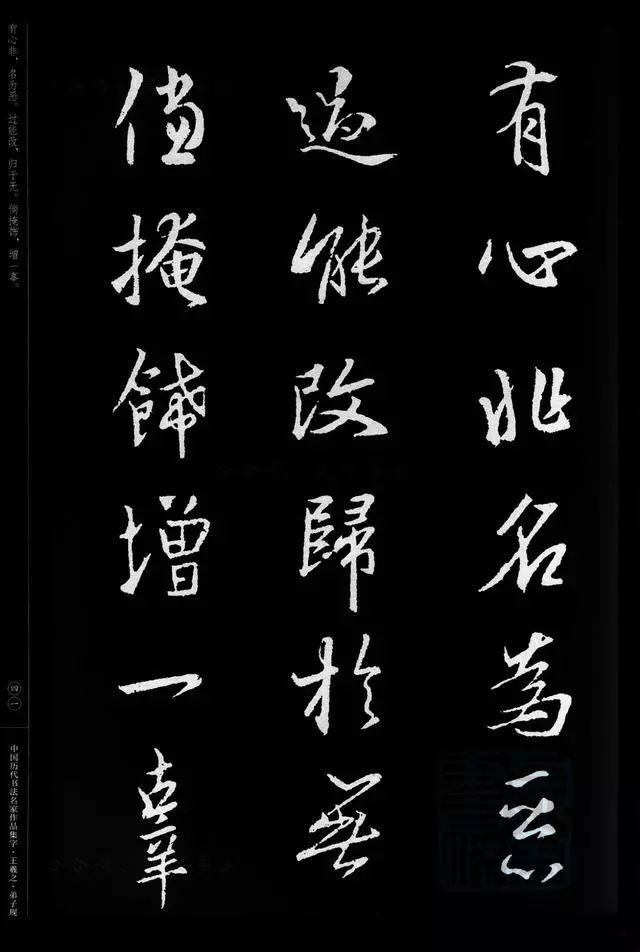 有心非名為惡
過能改歸於無
倘掩飾增一辜
有心非，名为恶。过能改，归于无。倘掩饰，增一辜。
四一
中国历代书法名家作品集字·王羲之·弟子规